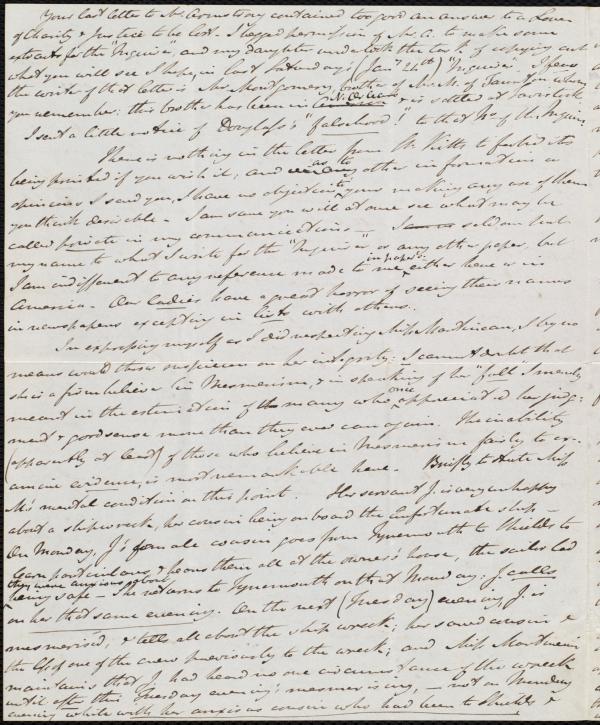 Your last letter to Mr. Armstrong contained too good an answer to a Lover
of Charity & Justice to be lost. I begged permission of Mr. A. to make some
extracts for the "Inquirer" and my daughter undertook the task of copying out
what you will see I hope, in last Saturday's (Jany 24th) Inquirer. I fear
the writer of that letter is Mr. Montgomery, brother of Mr. M. of Taunton whom
you remember: this brother has been in N. Orleans & is settled at
I sent a little notice of Douglass's "falsehood"! to that No. of the Inquirer
There is nothing in the letter from St. Kitts to forbid its
being printed if you wish it; and as to any other information or
opinions I send you, I have no objection to yours making any use of them
you think desirable. I am sure you will at once see what may be
called private in my communications. I seldom put
my name to what I write for the "Inquirer" or any other paper, but
I am indifferent to any reference made to me in papers either here or in
America. Our Ladies have a great horror of seeing their names
in newspapers excepting in lists with others.
In expressing myself as I did respecting Miss Martineau, I by no
means would throw suspicion on her integrity: I cannot doubt that
she is a firm believer in Mesmerism, & in speaking of her "fall" I merely
meant in the estimation of the many who once appreciated her judg-
ment & good sense more than they ever can again. The inability
(apparently at least) of those who believe in Mesmerism fairly to ex-
amine evidence, is most remarkable here. Briefly to state Miss
M's mental condition on this point. Her servant J. is very unhappy
about a shipwreck, her cousin being on board the unfortunate ship —
On Monday, J's female cousin goes from Tynemouth to Shields to
learn particulars, & hears them all at the owner's house, the sailor lad
they were anxious about being safe — She returns to Tynemouth on that Monday: J. calls
on her that same evening. On the next (Tuesday) evening, J. is
mesmerised, & tells all about the shipwreck; her saved cousin &
the loss of one of the crew previously to the wreck; and Miss Martineau
maintains that J. had heard no one circumstance of the wreck
until after this Tuesday evening's mesmerising, — not on Monday
evening while with her anxious cousin who had been to Shields &